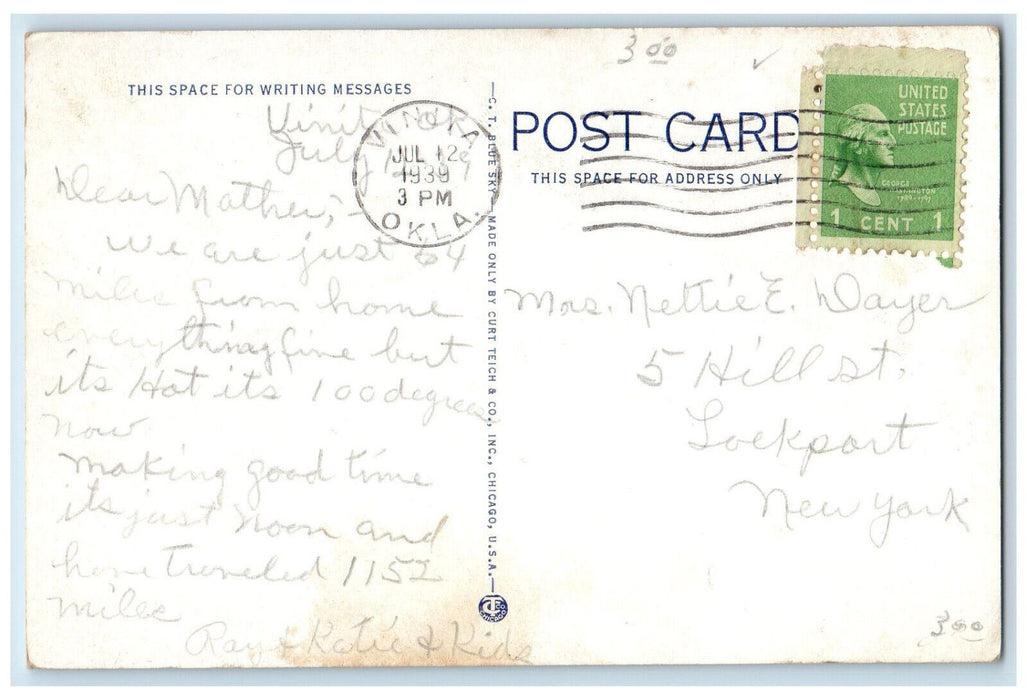 3 00
THIS SPACE FOR WRITING MESSAGES
Vinita
July 12
Dear Mother,
We are just 64
miles from home
everything fine but
its Hot its 100 degrees
now
making good time
its just noon and
have traveled 1152
miles
Ray & Katie & Kids
VINITA
JUL 12
1939
3 PM
OKLA.
C. T. BLUE SKY — MADE ONLY BY CURT TEICH & CO., INC., CHICAGO, U.S.A.
POST CARD
THIS SPACE FOR ADDRESS ONLY
UNITED
STATES
POSTAGE
GEORGE
WASHINGTON
1789-1797
1 CENT 1
Mrs. Nettie E. Dayer
5 Hill st.
Lockport
New York
CT
CHICAGO
3 00